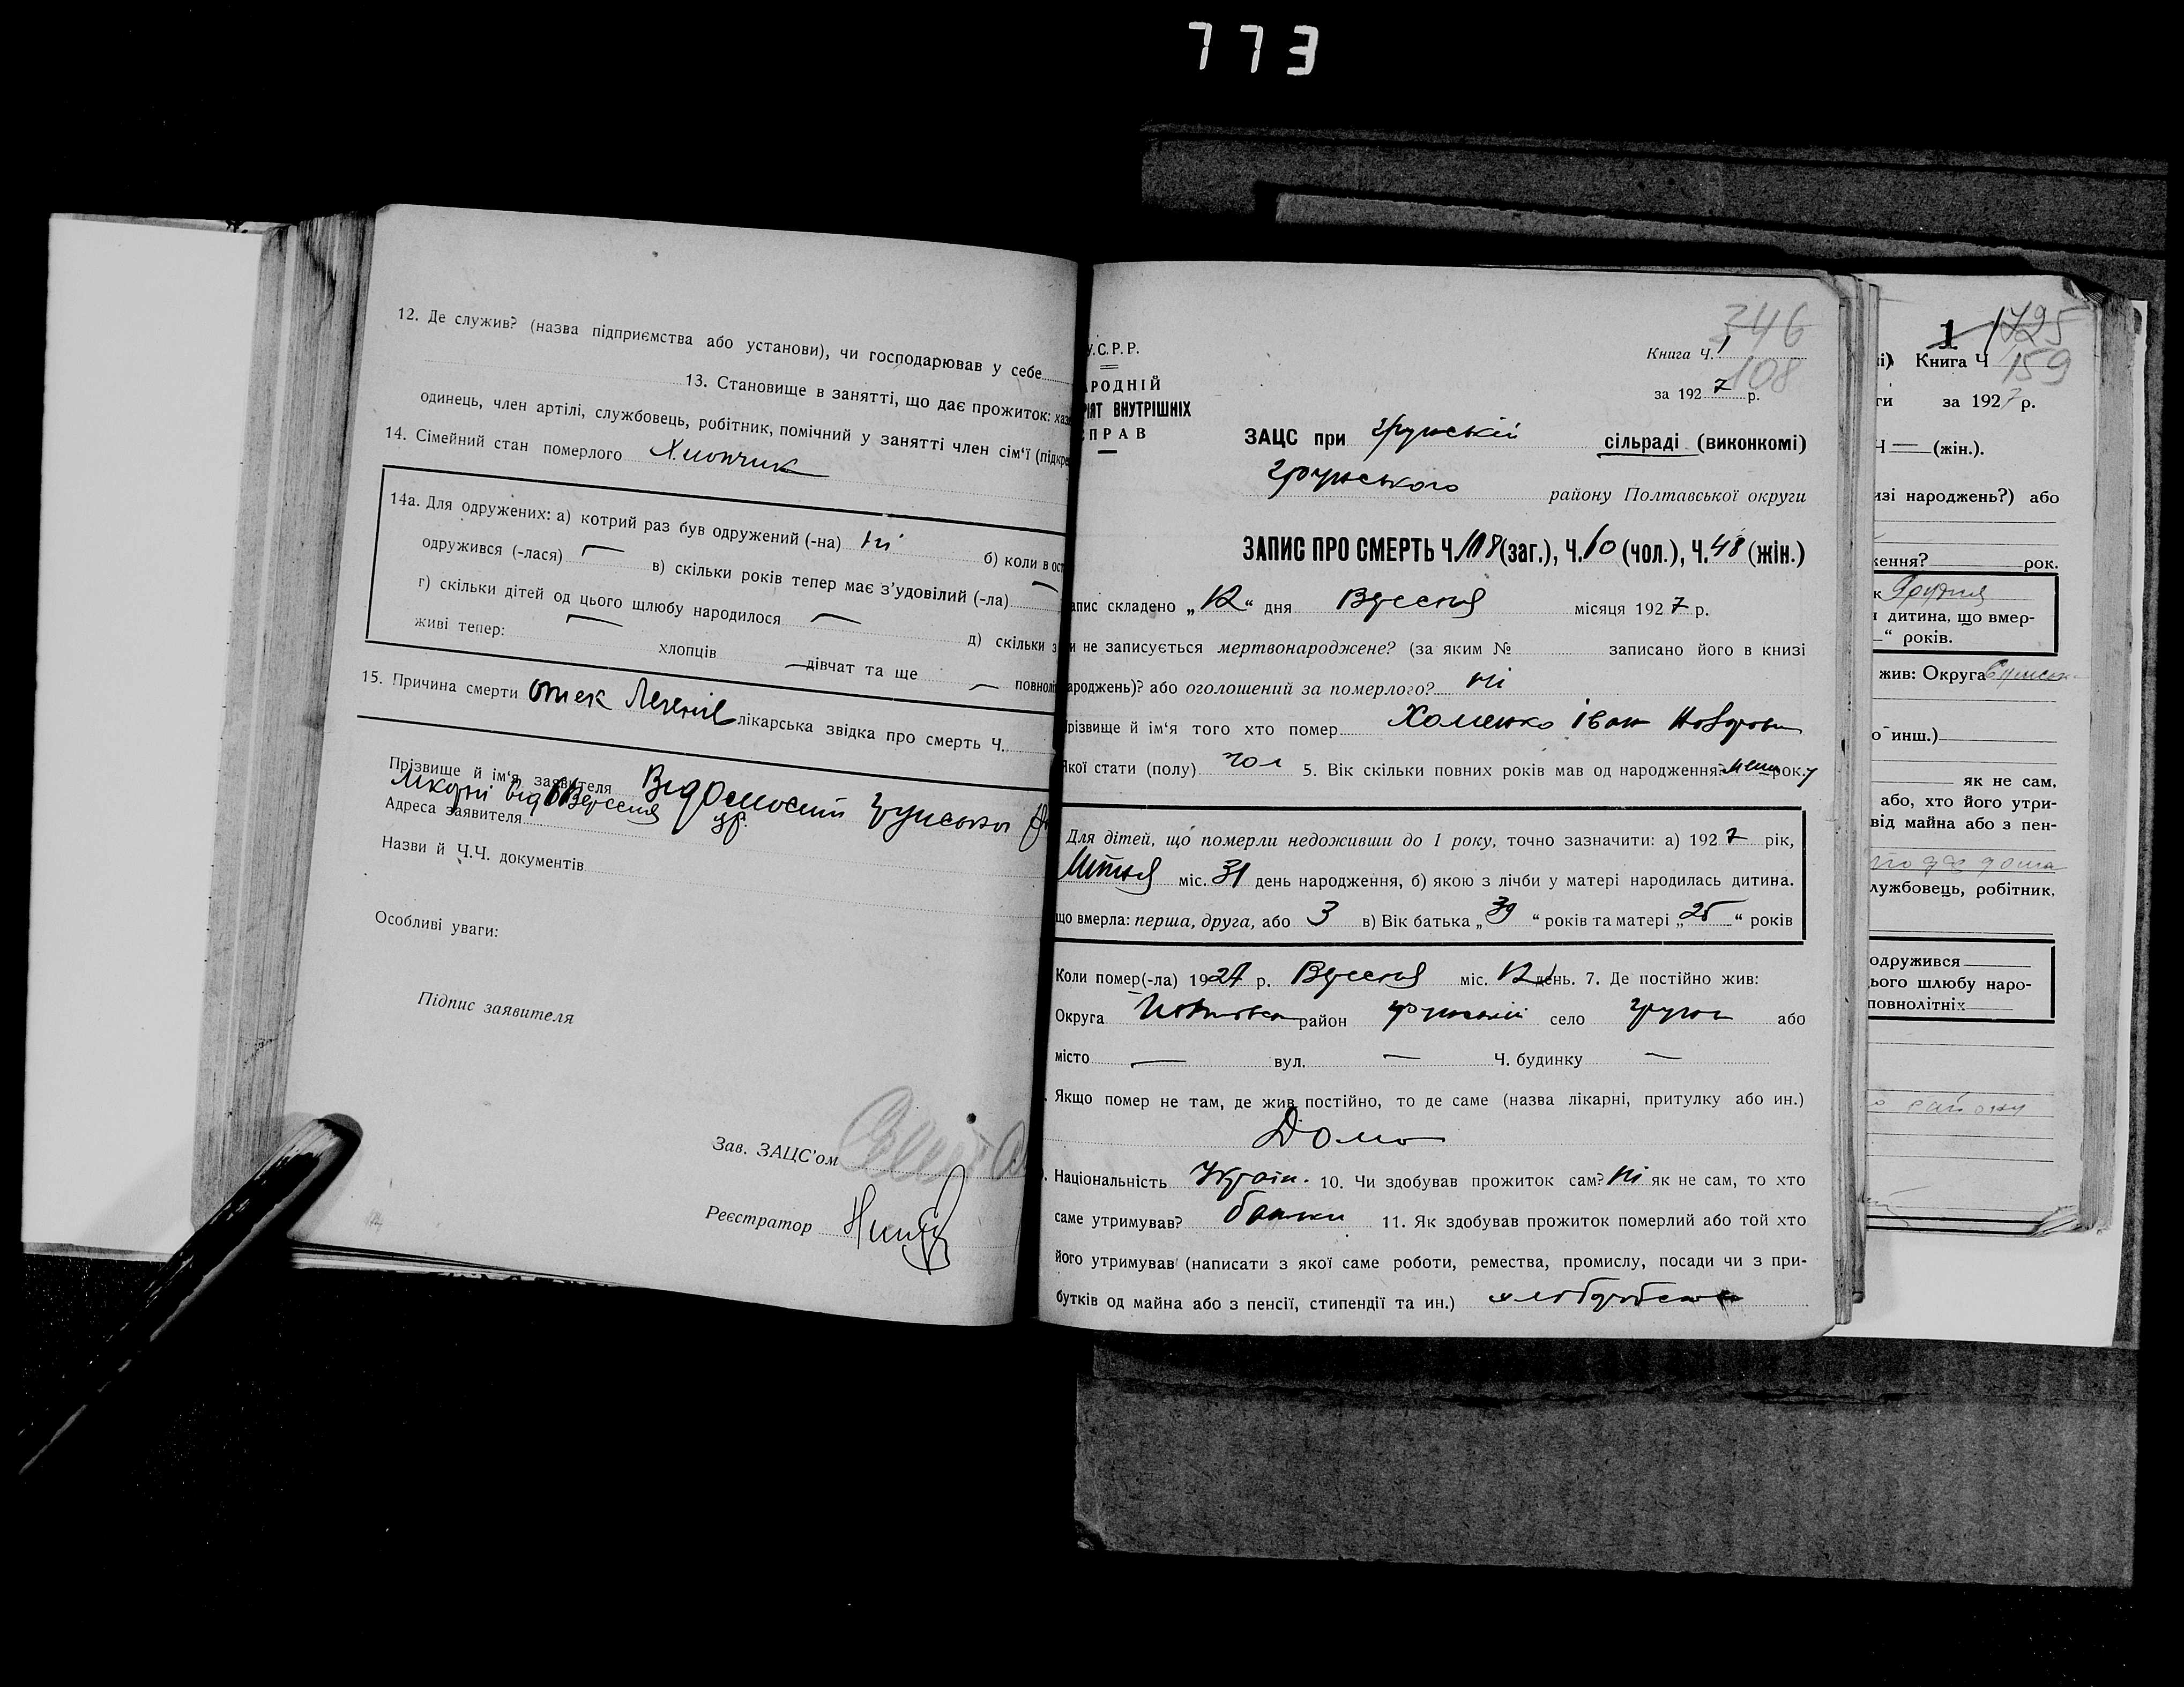 773
12. Де служив? (назва підприємства або установи), чи господарював у себе
13. Становище в занятті, що дає прожиток: хаз
одинець, член артілі, службовець, робітник, помічний у занятті член сім'ї (підкре
14. Сімейний стан померлого Хлопчик
14а. Для одружених: а) котрий раз був одружений (-на) ні б) коли в ост
одружився (-лася) — в) скільки років тепер має з'удовілий (-ла) —
г) скільки дітей од цього щлюбу народилося — д) скільки з
живі тепер: — хлопців — дівчат та ще — повноліт
15. Причина смерти Отек Легенів лікарська звідка про смерть Ч.
Прізвище й ім'я заявителя Відомости Грунської
Лікарні від Вересня
Адреса заявителя
Назви й Ч.Ч. документів
Особливі уваги:
Підпис заявителя
Зав. ЗАЦС'ом
Реєстратор
346
У.С.Р.Р.
Книга Ч. 1
108
РОДНІЙ
за 1927 р.
РІЯТ ВНУТРІШНІХ
ПРАВ
ЗАЦС при Грунській сільраді (виконкомі)
Грунського району Полтавської округи
ЗАПИС ПРО СМЕРТЬ Ч. 108 (заг.), Ч. 60 (чол.), Ч. 48 (жін.)
апис складено „12“ дня Вересня місяця 1927 р.
и не записується мертвонароджене? (за яким № записано його в книзі
ароджень)? або оголошений за померлого? ні
різвище й ім'я того хто помер Хоменко Іван
Якої стати (полу) чол 5. Вік скільки повних років мав од народження? менш року
Для дітей, що померли недоживши до 1 року, точно зазначити: а) 1927 рік,
міс. 31 день народження, б) якою з лічби у матері народилась дитина.
що вмерла: перша, друга, або 3 в) Вік батька „39“ років та матері „25“ років
Коли помер(-ла) 1927 р. Вересня міс. 12 день. 7. Де постійно жив:
Округа Полтавська район Грунський село Грунь або
місто — вул. — Ч. будинку —
Якщо помер не там, де жив постійно, то де саме (назва лікарні, притулку або ин.)
Дома
Національність Україн. 10. Чи здобував прожиток сам? ні як не сам, то хто
саме утримував? батьки 11. Як здобував прожиток померлий або той хто
його утримував (написати з якої саме роботи, ремества, промислу, посади чи з при-
бутків од майна або з пенсії, стипендії та ин.) хліборобство
1 1725
і) Книга Ч 159
ги за 1927 р.
Ч — (жін.).
изі народжень?) або
ження? рок.
к Грудня
я дитина, що вмер-
“ років.
жив: Округа Сумська
о инш.)
як не сам,
або, хто його утри-
від майна або з пен-
лужбовець, робітник,
одружився
ього шлюбу наро-
повнолітніх